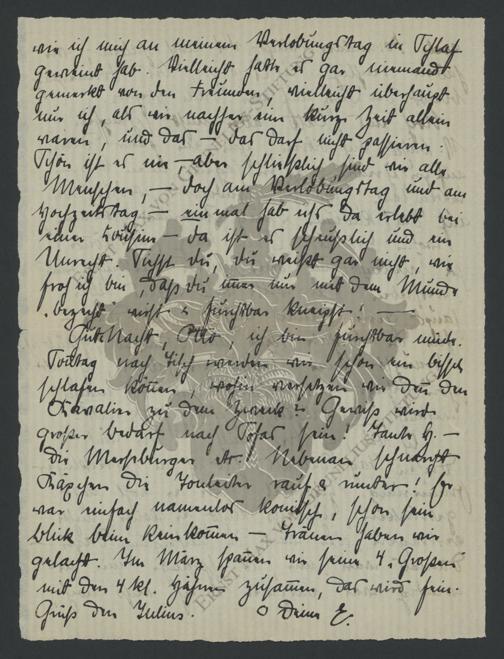 wie ich mich an meinem Verlobungstag in Schlaf
geweint hab. Vielleicht hatte es gar niemand
gemerkt von den Freunden, vielleicht überhaupt
nur ich, als wir nachher eine kurze Zeit allein
waren, und das — das darf nicht passieren.
Schön ist es nie — aber schließlich sind wir alle
Menschen, — doch am Verlobungstag und am
Hochzeitstag — einmal hab ichs da erlebt bei
einer Cousine — da ist es scheußlich und ein
Unrecht. Siehst du, du weißt gar nicht, wie
froh ich bin, daß du immer nur mit dem Munde
bezecht nicht & furchtbar kneipst! —
Gute Nacht, Otto, ich bin furchtbar müde.
Sonntag nach Tisch werden wir schon ein bissch
schlafen können, wohin versetzen wir denn den
Kavalier zu dem Zweck? Gewiß wird
großer Bedarf nach Sofas sein! Tante H. —
die Merseburger
Käppchen die Tonleiter rauf & runter! Er
war einfach namenlos komisch, schon sein
Blick beim Reinkommen — Tränen haben wir
gelacht. Im März spannen wir seine 4 Großen
mit den 4 kl. Hähnen zusammen, das wird fein.
Grüß den Julius. Deine E.
ERNST MAX VON
STIFTUNG